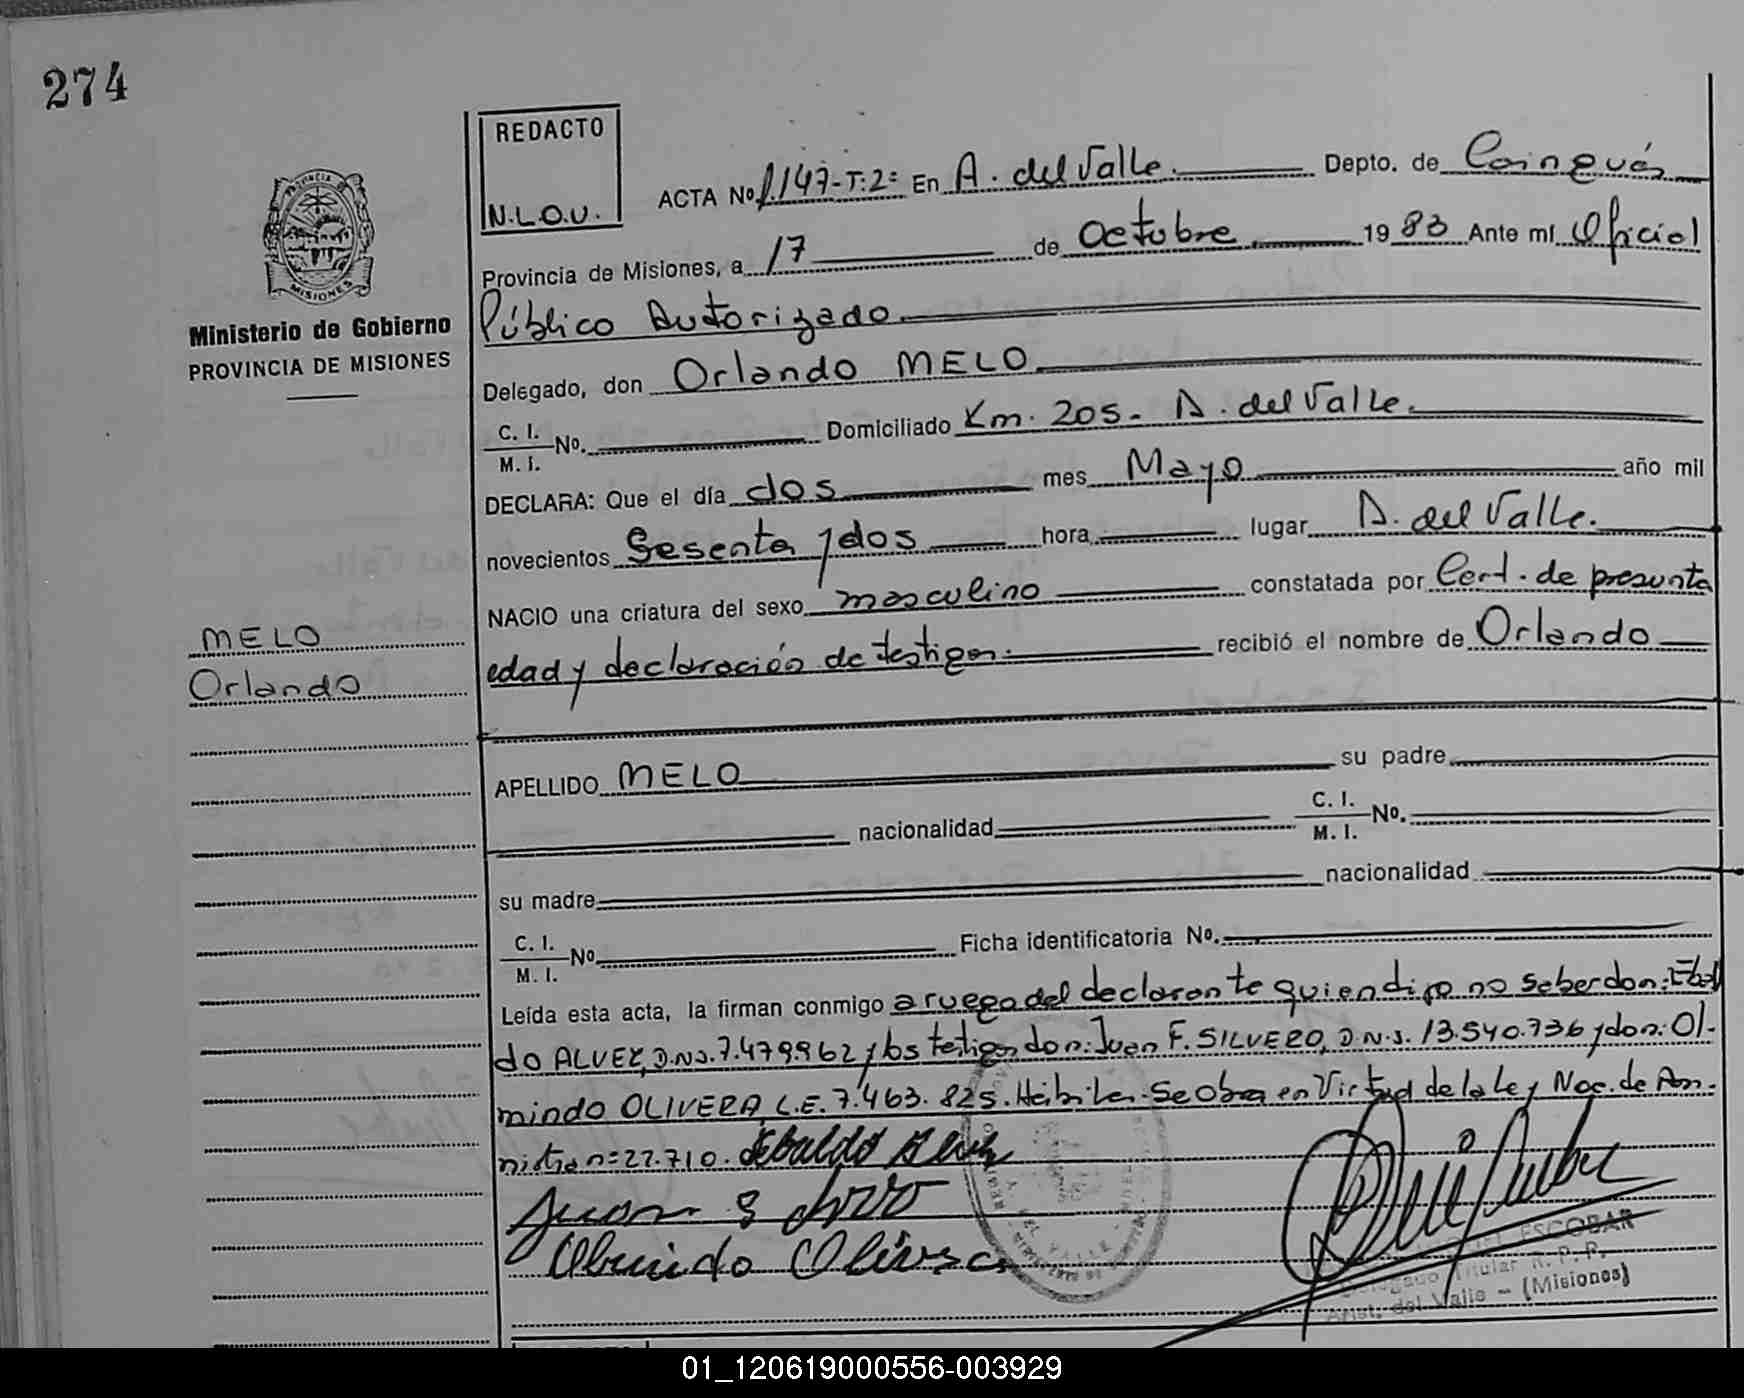 274
REDACTO
N.L.O.U.
ACTA No 1.147-T:2º En A. del Valle. Depto. de Cainguás
Provincia de Misiones, a 17 de Octubre 1983 Ante mí Oficial
Público Autorizado
PROVINCIA
MISIONES
Ministerio de Gobierno
PROVINCIA DE MISIONES
Delegado, don Orlando MELO
C. I.
M. I. No. Domiciliado Km. 205 - A. del Valle.
DECLARA: Que el día dos mes Mayo año mil
novecientos Sesenta y dos hora lugar A. del Valle.
NACIO una criatura del sexo masculino constatada por Cert. de presunta
edad y declaración de testigos. recibió el nombre de Orlando
MELO
Orlando
APELLIDO MELO su padre
nacionalidad C. I.
M. I. No.
su madre nacionalidad
C. I.
M. I. No Ficha identificatoria No.
Leída esta acta, la firman conmigo a ruego del declarante quien dijo no saber don:
do ALVEZ, D.N.I. 7.479.962 y los testigos don: Juan F. SILVERO, D.N.I. 13.540.736 y don: Ol-
mindo OLIVERA, L.E. 7.463.825. Hábiles. Se Obra en Virtud de la Ley Nac. de Am-
nistia nº 22.710.
Olmindo Olivera
ESCOBAR
Delegado Titular R. P. P.
Arist. del Valle - (Misiones)
01_120619000556-003929